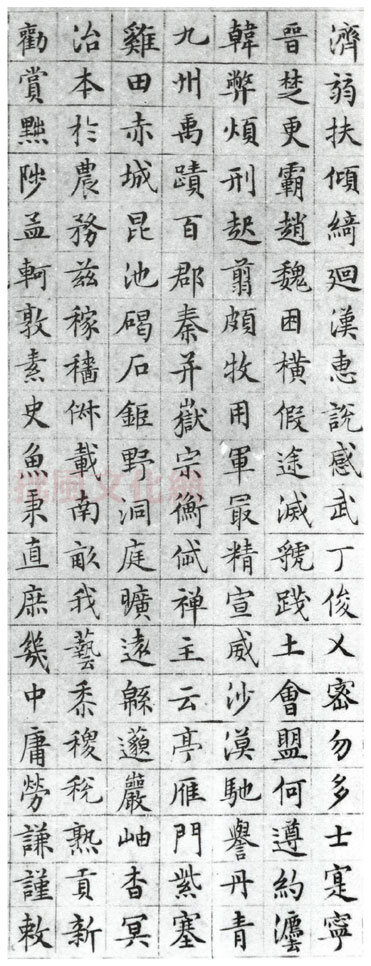 濟弱扶傾綺迴漢惠說感武丁俊乂密勿多士寔寧
晉楚更霸趙魏困橫假途滅虢踐土會盟何遵約灋
韓弊煩刑起翦頗牧用軍最精宣威沙漠馳譽丹青
九州禹蹟百郡秦并嶽宗衡岱禪主云亭雁門紫塞
雞田赤城昆池碣石鉅野洞庭曠遠緜邈巖岫杳冥
治本於農務茲稼穡俶載南畝我藝黍稷稅熟貢新
勸賞黜陟孟軻敦素史魚秉直庶幾中庸勞謙謹敕